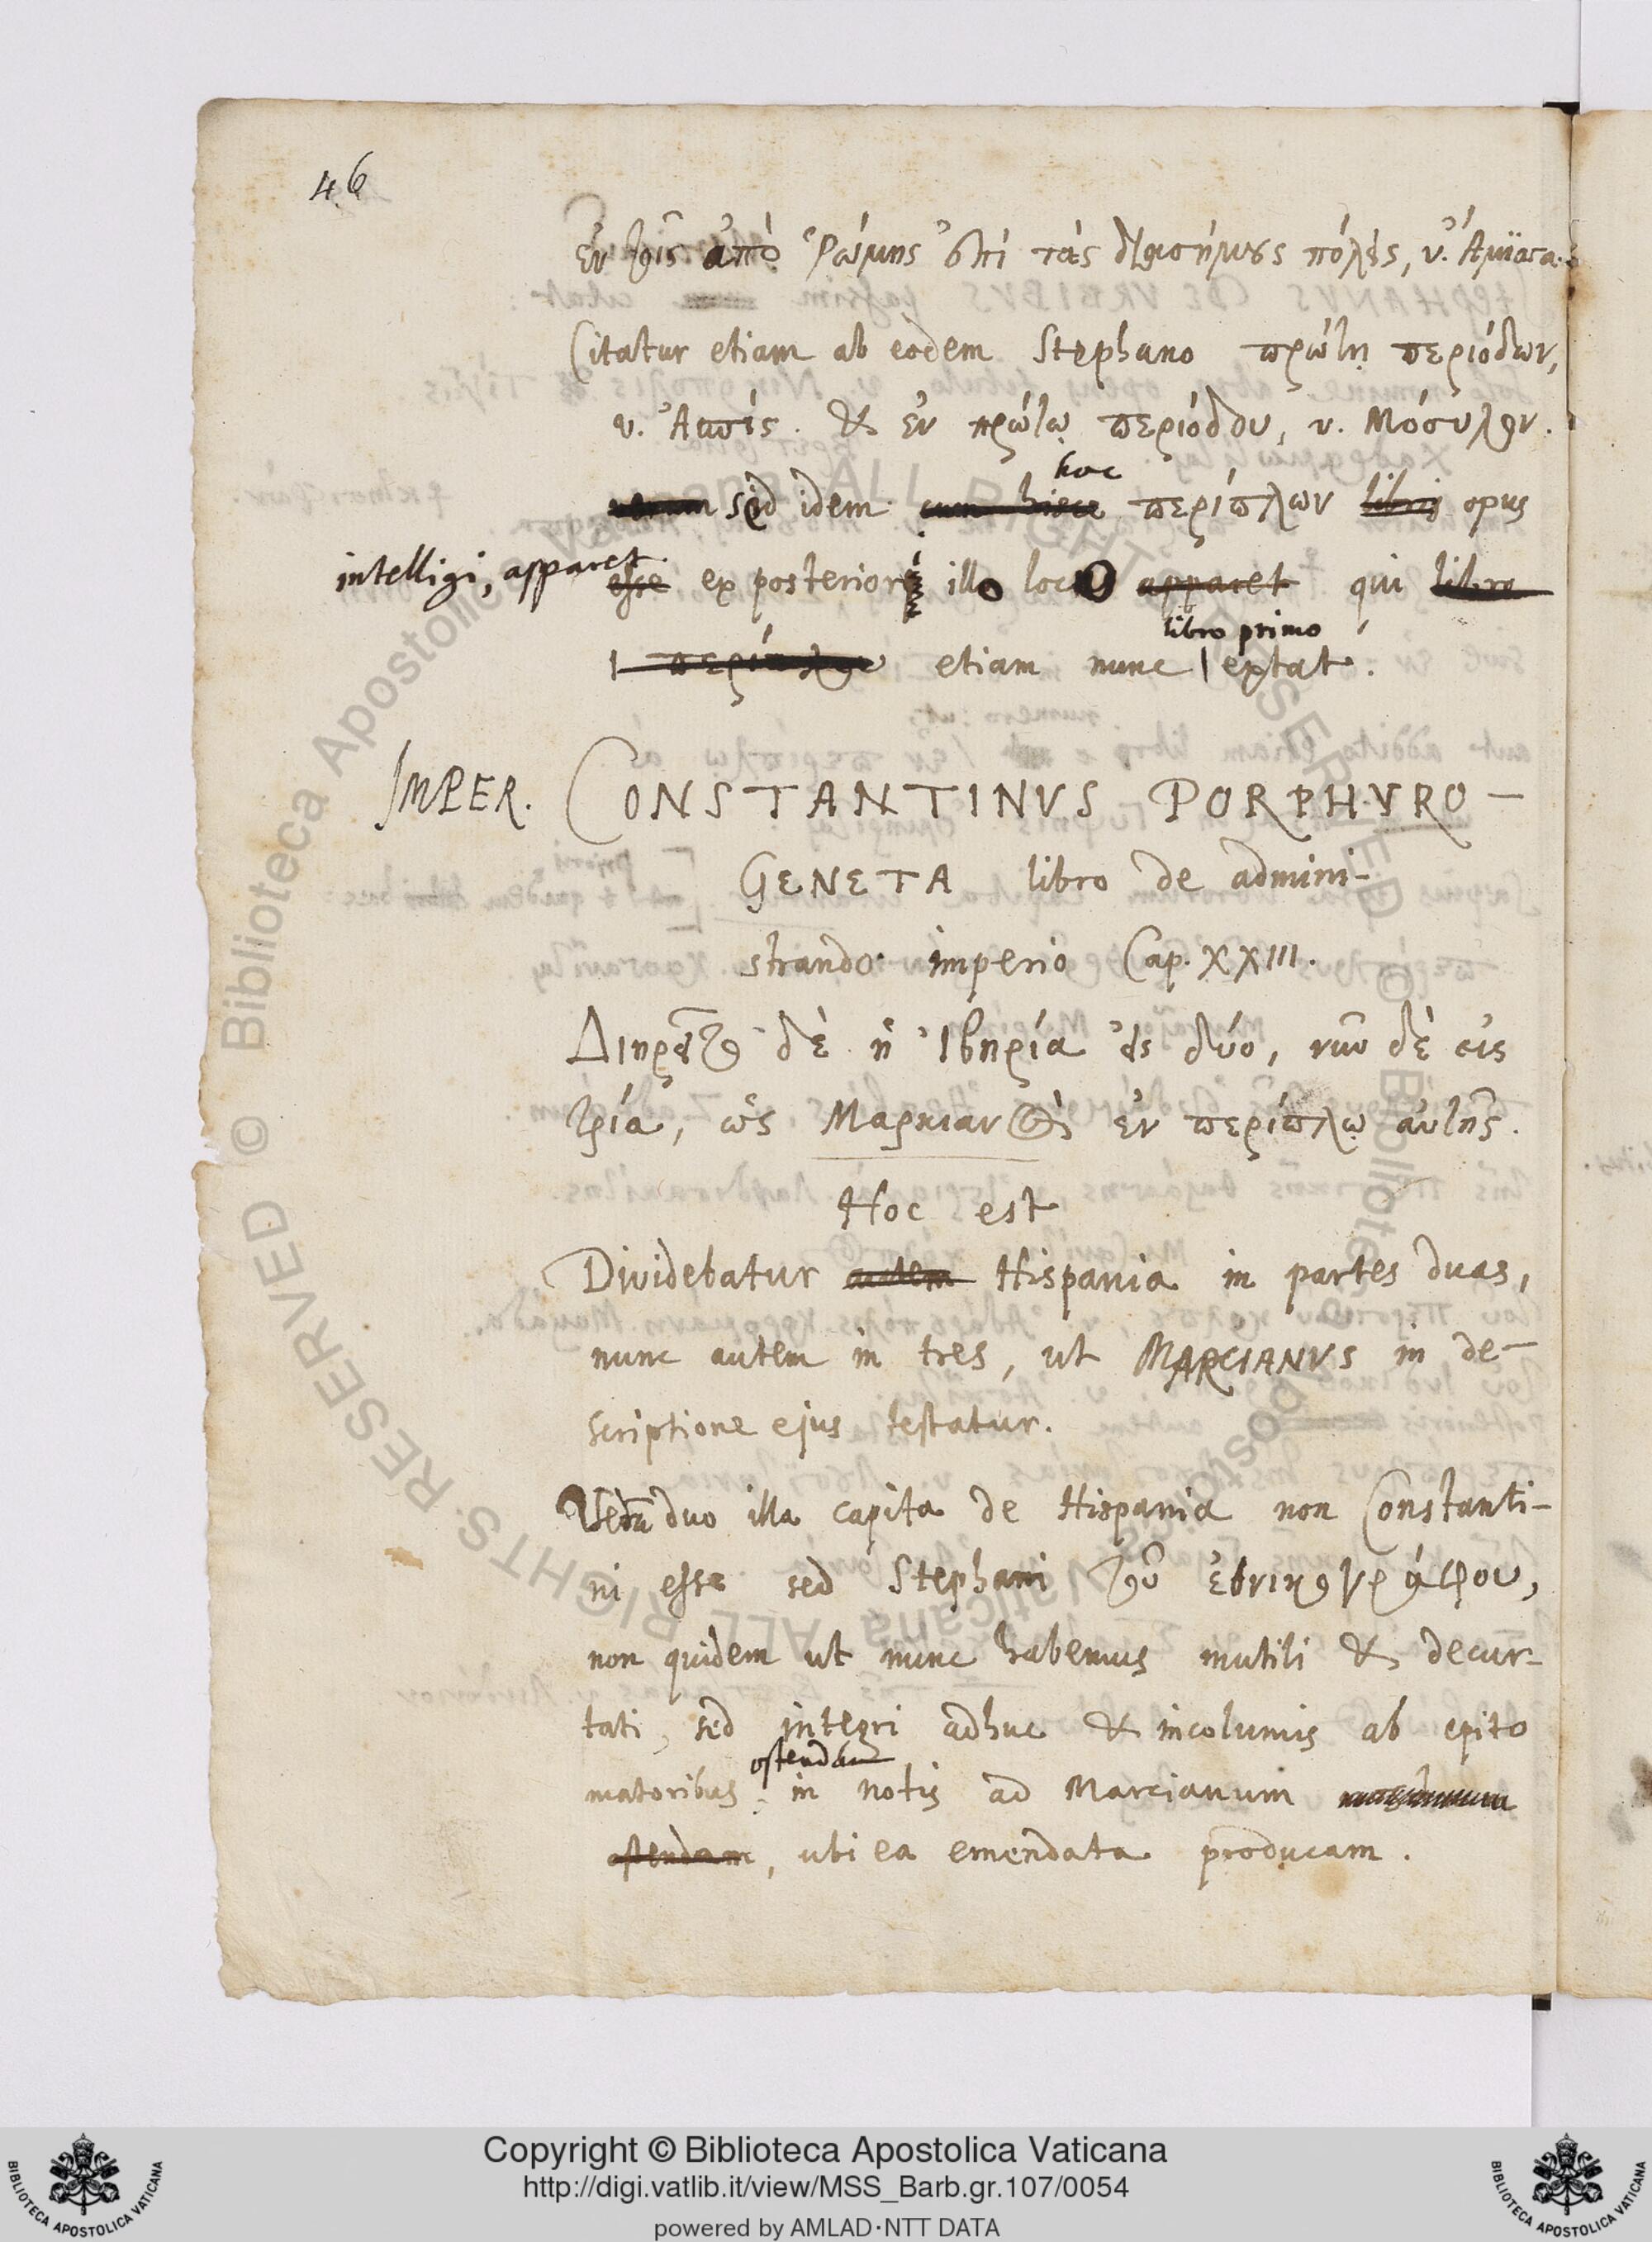 46
ἐν τοῖς ἀπὸ Ῥώμης ἐπὶ τὰς διασήμους πόλεις, v. Ἀμίσα.
Citatur etiam ab eodem Stephano πρώτῃ περιόδων,
v. Ἀσπίς. & ἐν πρώτῳ περιόδου, v. Μόσυλον.
hoc
sed idem cum hisce περίπλων libris opus
intelligi, apparet
esse ex posteriore illo loco apparet qui libro
libro primo
1 περίπλου etiam nunc | extat.
IMPER. CONSTANTINVS PORPHYRO-
GENETA libro de admini-
strando imperio Cap. XXIII.
Διηρεῖτο δὲ ἡ Ἰβηρία εἰς δύο, νῦν δὲ εἰς
τρία, ὡς Μαρκιανὸς ἐν περίπλῳ αὐτῆς.
Hoc est
Dividebatur autem Hispania in partes duas,
nunc autem in tres, ut MARCIANVS in de-
scriptione ejus testatur.
Verũ duo illa capita de Hispania non Constanti-
ni esse sed Stephani τοῦ ἐθνικογράφου,
non quidem ut nunc habemus mutili & decur-
tati, sed integri adhuc & incolumis ab epito
ostendam
matoribus, in notis ad Marcianum
ostendam, ubi ea emendata producam.
Copyright © Biblioteca Apostolica Vaticana
http://digi.vatlib.it/view/MSS_Barb.gr.107/0054
powered by AMLAD·NTT DATA
BIBLIOTECA APOSTOLICA VATICANA
BIBLIOTECA APOSTOLICA VATICANA
© Biblioteca Apostolica Vaticana ALL RIGHTS RESERVED © Biblioteca Apostolica Vaticana ALL RIGHTS RESERVED